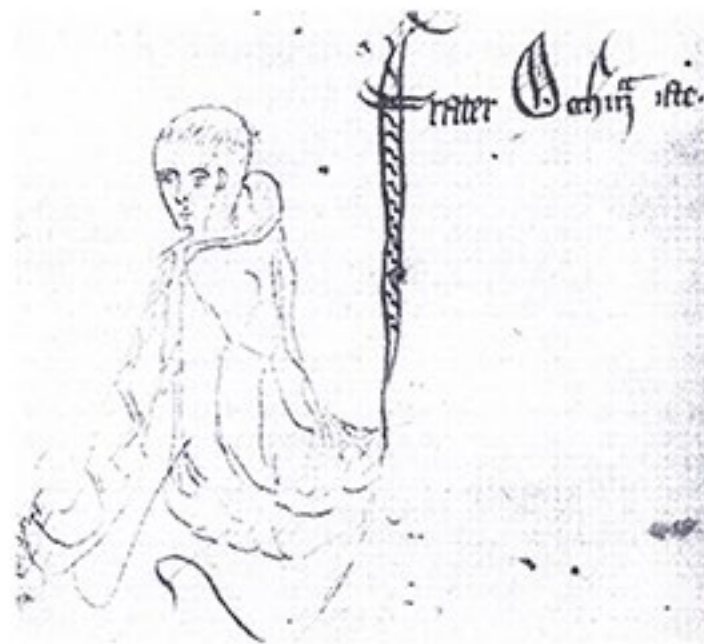 Frater Occham iste